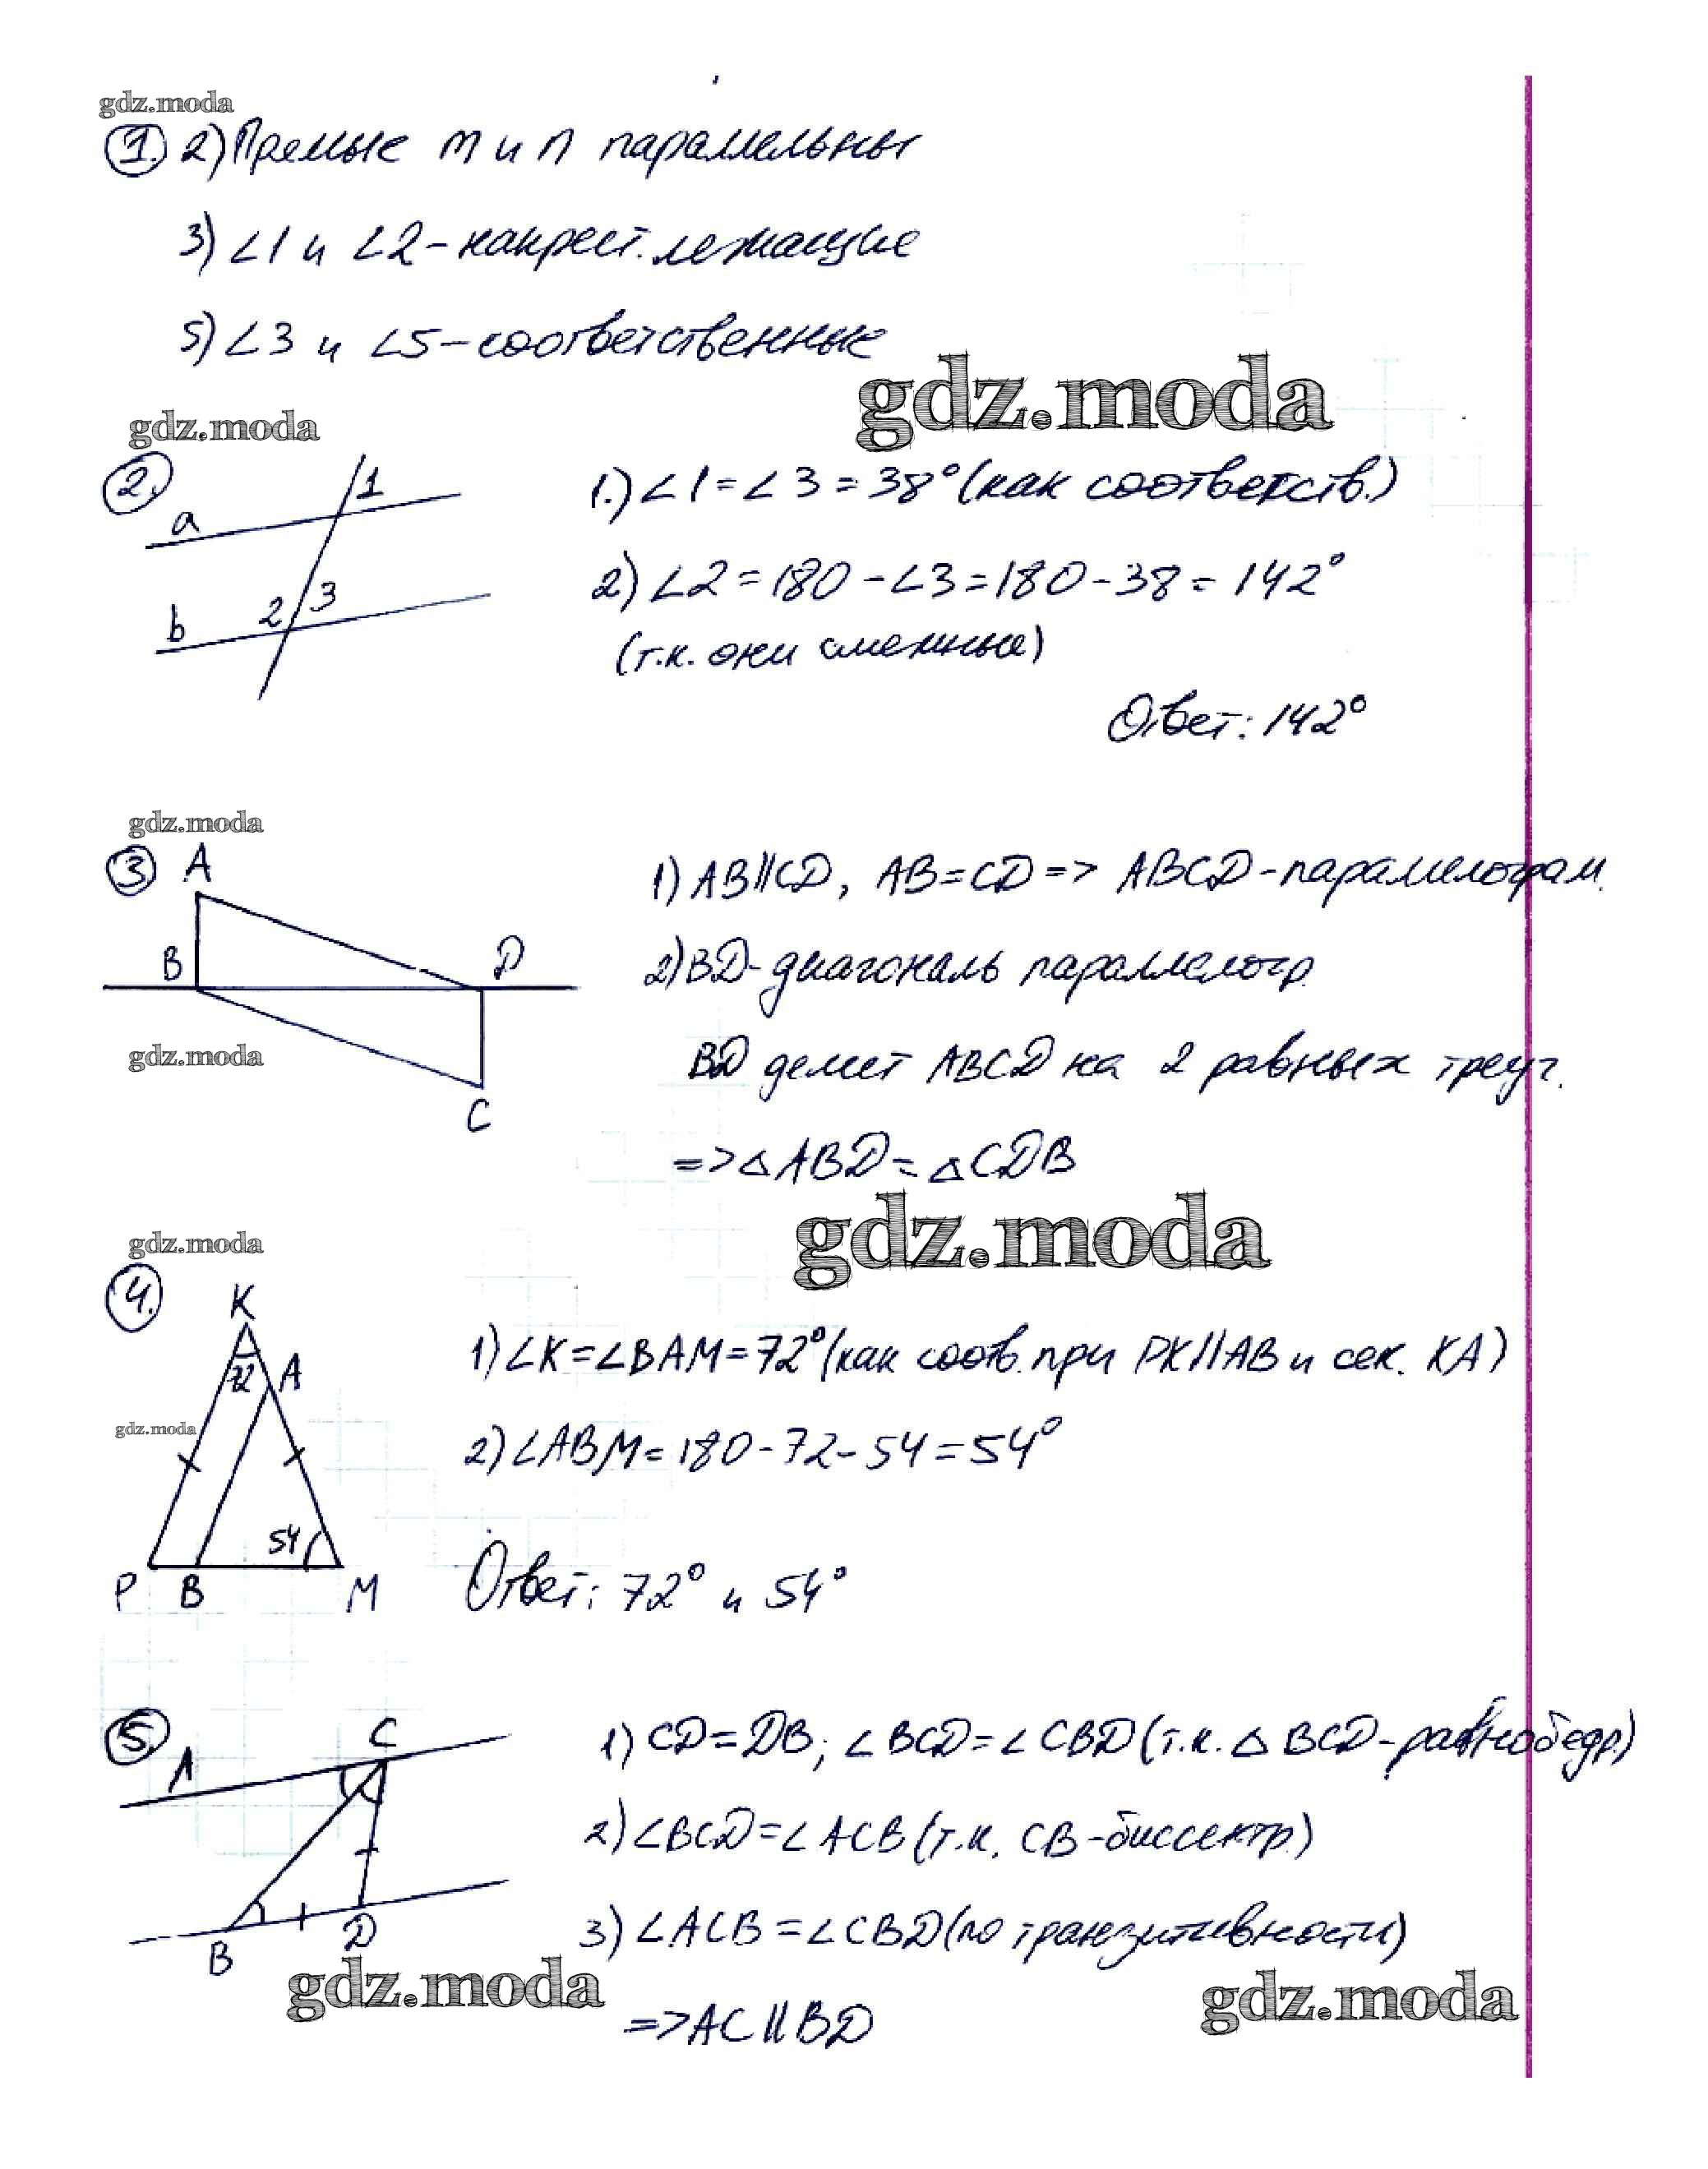 gdz.moda
1. 2) Прямые m и n параллельны
3) ∠1 и ∠2 - накрест. лежащие
5) ∠3 и ∠5 - соответственные
gdz.moda
gdz.moda
2.
1
a
2 3
b
1.) ∠1 = ∠3 = 38° (как соответств.)
2) ∠2 = 180 - ∠3 = 180 - 38 = 142°
(т.к. они смежные)
Ответ: 142°
gdz.moda
3
A
B
D
C
gdz.moda
1) AB||CD, AB = CD => ABCD - параллелограм.
2) BD - диагональ параллелогр.
BD делит ABCD на 2 равных треуг.
=> △ABD = △CDB
gdz.moda
gdz.moda
4.
K
72 A
gdz.moda
54
P B M
1) ∠K = ∠BAM = 72° (как соотв. при PK||AB и сек. KA)
2) ∠ABM = 180 - 72 - 54 = 54°
Ответ: 72° и 54°
5.
C
A
B D
1) CD = DB; ∠BCD = ∠CBD (т.к. △BCD - равнобедр.)
2) ∠BCD = ∠ACB (т.к. CB - биссектр.)
3) ∠ACB = ∠CBD (по транзитивности)
=> AC||BD
gdz.moda
gdz.moda